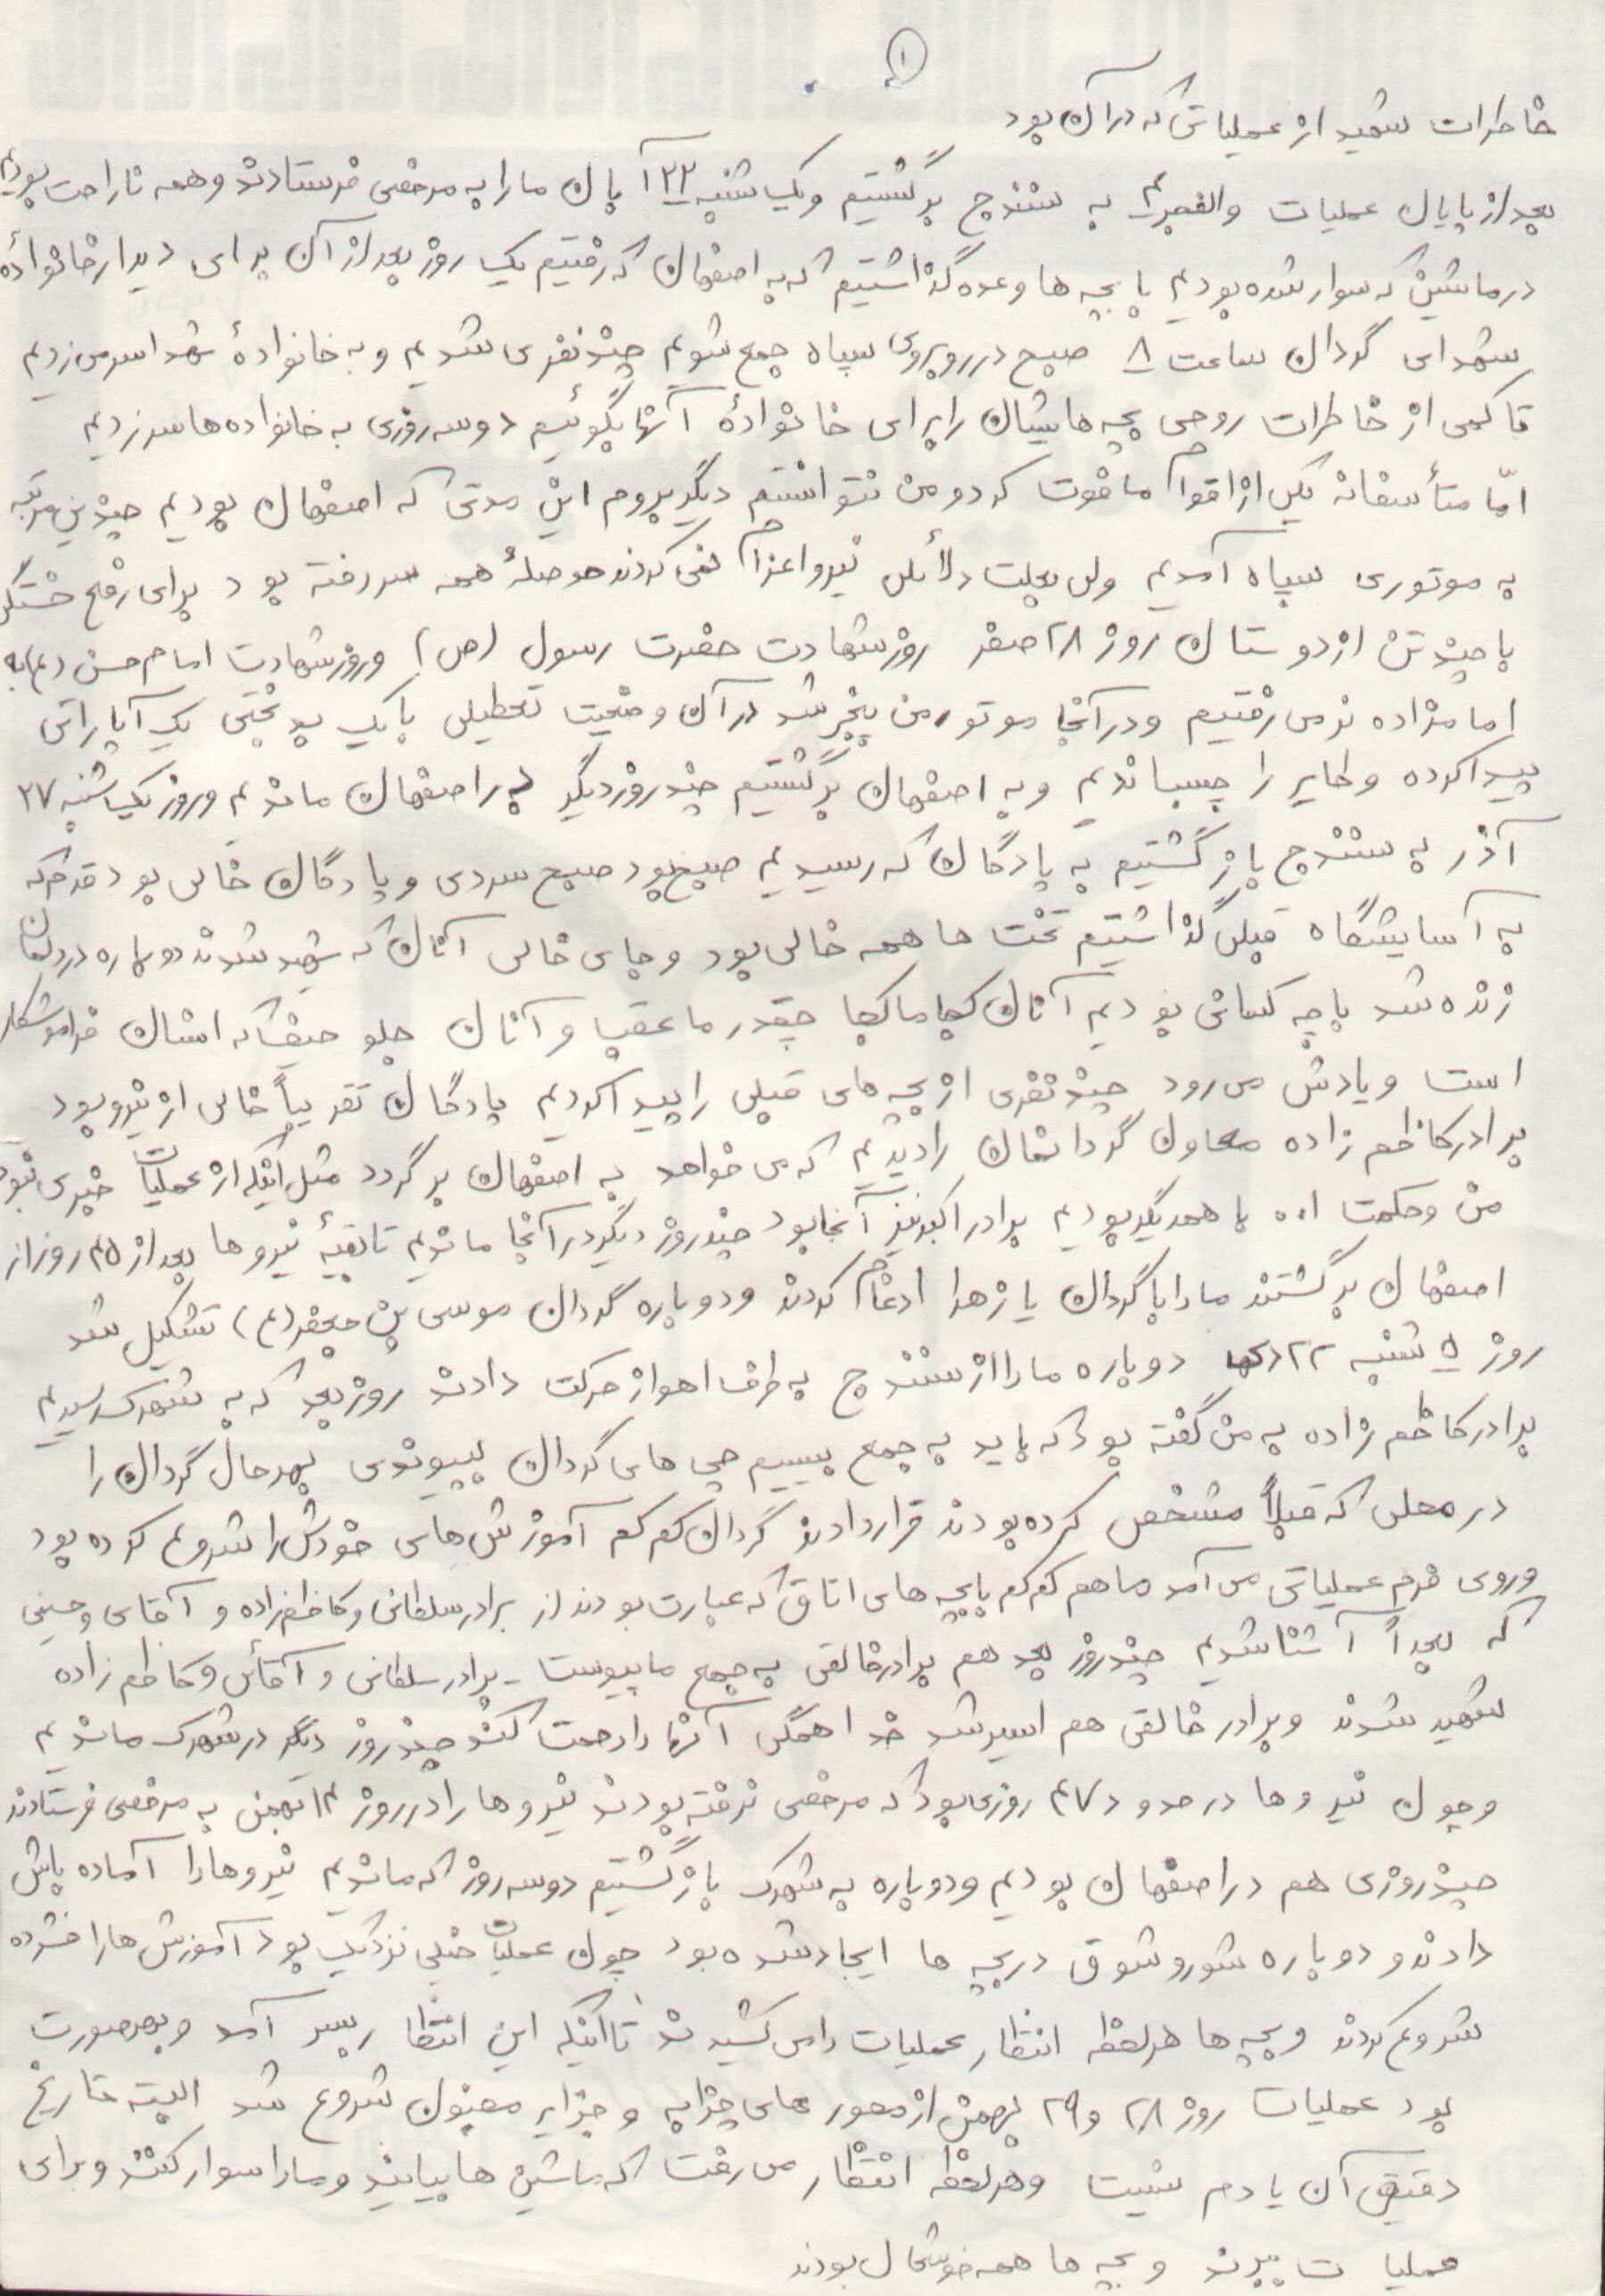 ۱
خاطرات شهید از عملیاتی که در آن بود
بعد از پایان عملیات والفجر ۴ به سنندج برگشتیم و یک شنبه ۲۲ آبان ما را به مرخصی فرستادند و همه ناراحت بودیم
در ماشین که سوار شده بودیم با بچه ها وعده گذاشتیم که به اصفهان که رفتیم یک روز بعد از آن برای دیدار خانوادۀ
شهدای گردان ساعت ۸ صبح در روبروی سپاه جمع شویم چند نفری شدیم و به خانوادۀ شهدا سر می زدیم
تا کمی از خاطرات روحی بچه هایشان را برای خانوادۀ آنها بگوئیم دو سه روزی به خانواده ها سر زدیم
امّا متأسفانه یکی از اقوام ما فوت کرد و من نتوانستم دیگر بروم این مدتی که اصفهان بودیم چندین مرتبه
به موتوری سپاه آمدیم ولی بعلت دلائلی نیرو اعزام نمی کردند حوصلۀ همه سر رفته بود برای رفع خستگی
با چند تن از دوستان روز ۲۸ صفر روز شهادت حضرت رسول (ص) و روز شهادت امام حسن (ع) به
امامزاده نرمی رفتیم و در آنجا موتور من پنچر شد در آن وضعیت تعطیلی با یک بدبختی یک آپاراتی
پیدا کرده و طایر را چسباندیم و به اصفهان برگشتیم چند روز دیگر در اصفهان ماندیم و روز یکشنبه ۲۷
آذر به سنندج بازگشتیم به پادگان که رسیدیم صبح بود صبح سردی و پادگان خالی بود قدم که
به آسایشگاه قبلی گذاشتیم تخت ها همه خالی بود و جای خالی آنان که شهید شدند دوباره در دلمان
زنده شد با چه کسانی بودیم آنان کجا ما کجا چقدر ما عقب و آنان جلو حیف که انسان فراموشکار
است و یادش می رود چند نفری از بچه های قبلی را پیدا کردیم پادگان تقریباً خالی از نیرو بود
برادر کاظم زاده معاون گردانمان را دیدیم که می خواهد به اصفهان برگردد مثل اینکه از عملیات خبری نبود
من و حکمت ا.. با همدیگر بودیم برادر اکبر نیز آنجا بود چند روز دیگر در آنجا ماندیم تا بقیۀ نیروها بعد از ۴۵ روز از
اصفهان برگشتند ما را با گردان یا زهرا ادغام کردند و دوباره گردان موسی بن جعفر (ع) تشکیل شد
روز ۵ شنبه ۲۲ دی دوباره ما را از سنندج به طرف اهواز حرکت دادند روز بعد که به شهرک رسیدیم
برادر کاظم زاده به من گفته بود که باید به جمع بیسیم چی های گردان بپیوندی بهر حال گردان را
در محلی که قبلاً مشخص کرده بودند قرار دادند گردان کم کم آموزش های خودش را شروع کرده بود
و روی فرم عملیاتی می آمد ما هم کم کم با بچه های اتاق که عبارت بودند از برادر سلطانی و کاظم زاده و آقای وحینی
که بعداً آشنا شدیم چند روز بعد هم برادر خالقی به جمع ما پیوست - برادر سلطانی و آقائی و کاظم زاده
شهید شدند و برادر خالقی هم اسیر شد خدا همگی آنها را رحمت کند چند روز دیگر در شهرک ماندیم
و چون نیروها در حدود ۴۷ روزی بود که مرخصی نرفته بودند نیروها را در روز ۱۴ بهمن به مرخصی فرستادند
چند روزی هم در اصفهان بودیم و دوباره به شهرک بازگشتیم دو سه روز که ماندیم نیروها را آماده باش
دادند و دوباره شور و شوق در بچه ها ایجاد شده بود چون عملیات خیلی نزدیک بود آموزش ها را فشرده
شروع کردند و بچه ها هر لحظه انتظار عملیات را می کشیدند تا اینکه این انتظار بسر آمد و بهر صورت
بود عملیات روز ۲۸ و ۲۹ بهمن از محور های چزابه و جزایر مجنون شروع شد البته تاریخ
دقیق آن یادم نیست و هر لحظه انتظار می رفت که ماشین ها بیایند و ما را سوار کنند و برای
عملیات ببرند و بچه ها همه خوشحال بودند